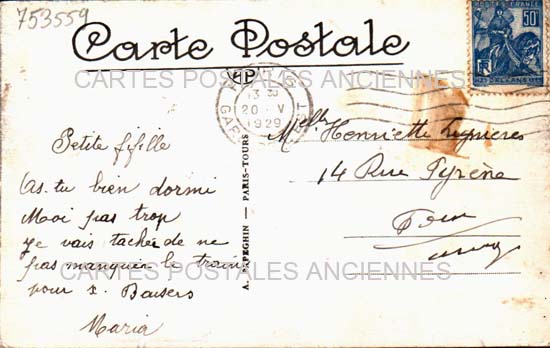 753559
Carte Postale
POSTES FRANCE
50c
ORLEANS
13 30
20 V
1929
GARE
CARTES POSTALES ANCIENNES
Petite fifille
As-tu bien dormi
Moi pas trop
je vais tacher de ne
pas manquer le train
pour Baisers
Maria
A. PAPEGHIN — PARIS-TOURS
Melle Henriette
14 Rue Pyrène
CARTES POSTALES ANCIENNES